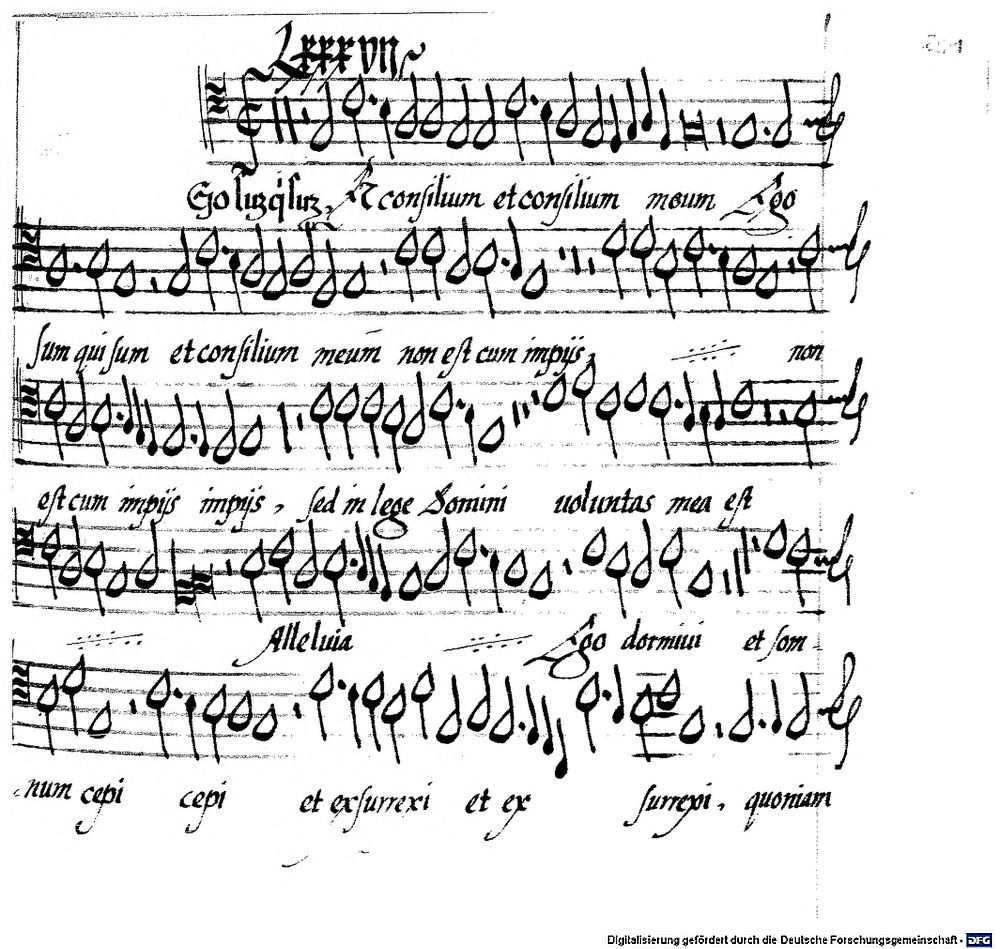 Lxxxvij
Ego sum qui sum, Et consilium et consilium meum Ego
sum qui sum et consilium meum̄ non est cum impijs, non
est cum impijs impijs, sed in lege Domini uoluntas mea est
Alleluia Ego dormiui et som-
num cepi cepi et exsurrexi et ex surrexi, quoniam
Digitalisierung gefördert durch die Deutsche Forschungsgemeinschaft - DFG